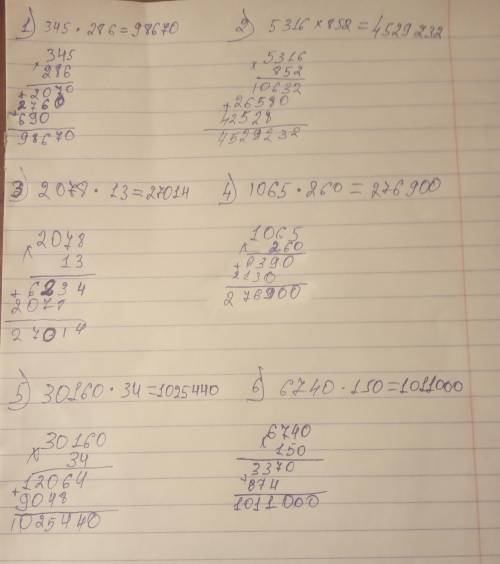 1) 345 · 286 = 98670
× 345
286
+ 2070
2760
690
98670
2) 5316 × 852 = 4529232
× 5316
852
10632
+ 26580
42528
4529232
3) 2078 · 13 = 27014
× 2078
13
+ 6234
2078
27014
4) 1065 · 260 = 276900
× 1065
260
+ 6390
2130
276900
5) 30160 · 34 = 1025440
× 30160
34
12064
+ 9048
1025440
6) 6740 · 150 = 1011000
× 6740
150
3370
+ 674
1011000